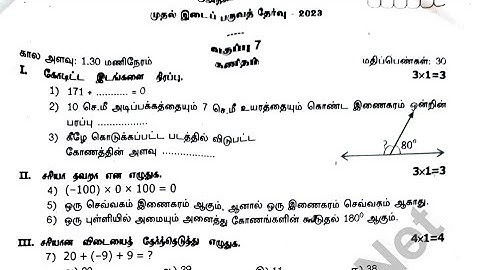 முதல் இடைப் பருவத் தேர்வு - 2023
வகுப்பு 7
கால அளவு: 1.30 மணிநேரம்
கணிதம்
மதிப்பெண்கள்: 30
I. கோடிட்ட இடங்களை நிரப்பு.
3x1=3
1) 171 + ........... = 0
2) 10 செ.மீ அடிப்பக்கத்தையும் 7 செ.மீ உயரத்தையும் கொண்ட இணைகரம் ஒன்றின்
பரப்பு ...............
3) கீழே கொடுக்கப்பட்ட படத்தில் விடுபட்ட
கோணத்தின் அளவு ...............
? 80°
II. சரியா தவறா என எழுதுக.
3x1=3
4) (−100) × 0 × 100 = 0
5) ஒரு செவ்வகம் இணைகரம் ஆகும், ஆனால் ஒரு இணைகரம் செவ்வகம் ஆகாது.
6) ஒரு புள்ளியில் அமையும் அனைத்து கோணங்களின் கூடுதல் 180° ஆகும்.
III. சரியான விடையைத் தேர்ந்தெடுத்து எழுதுக.
4x1=4
7) 20 + (−9) + 9 = ?